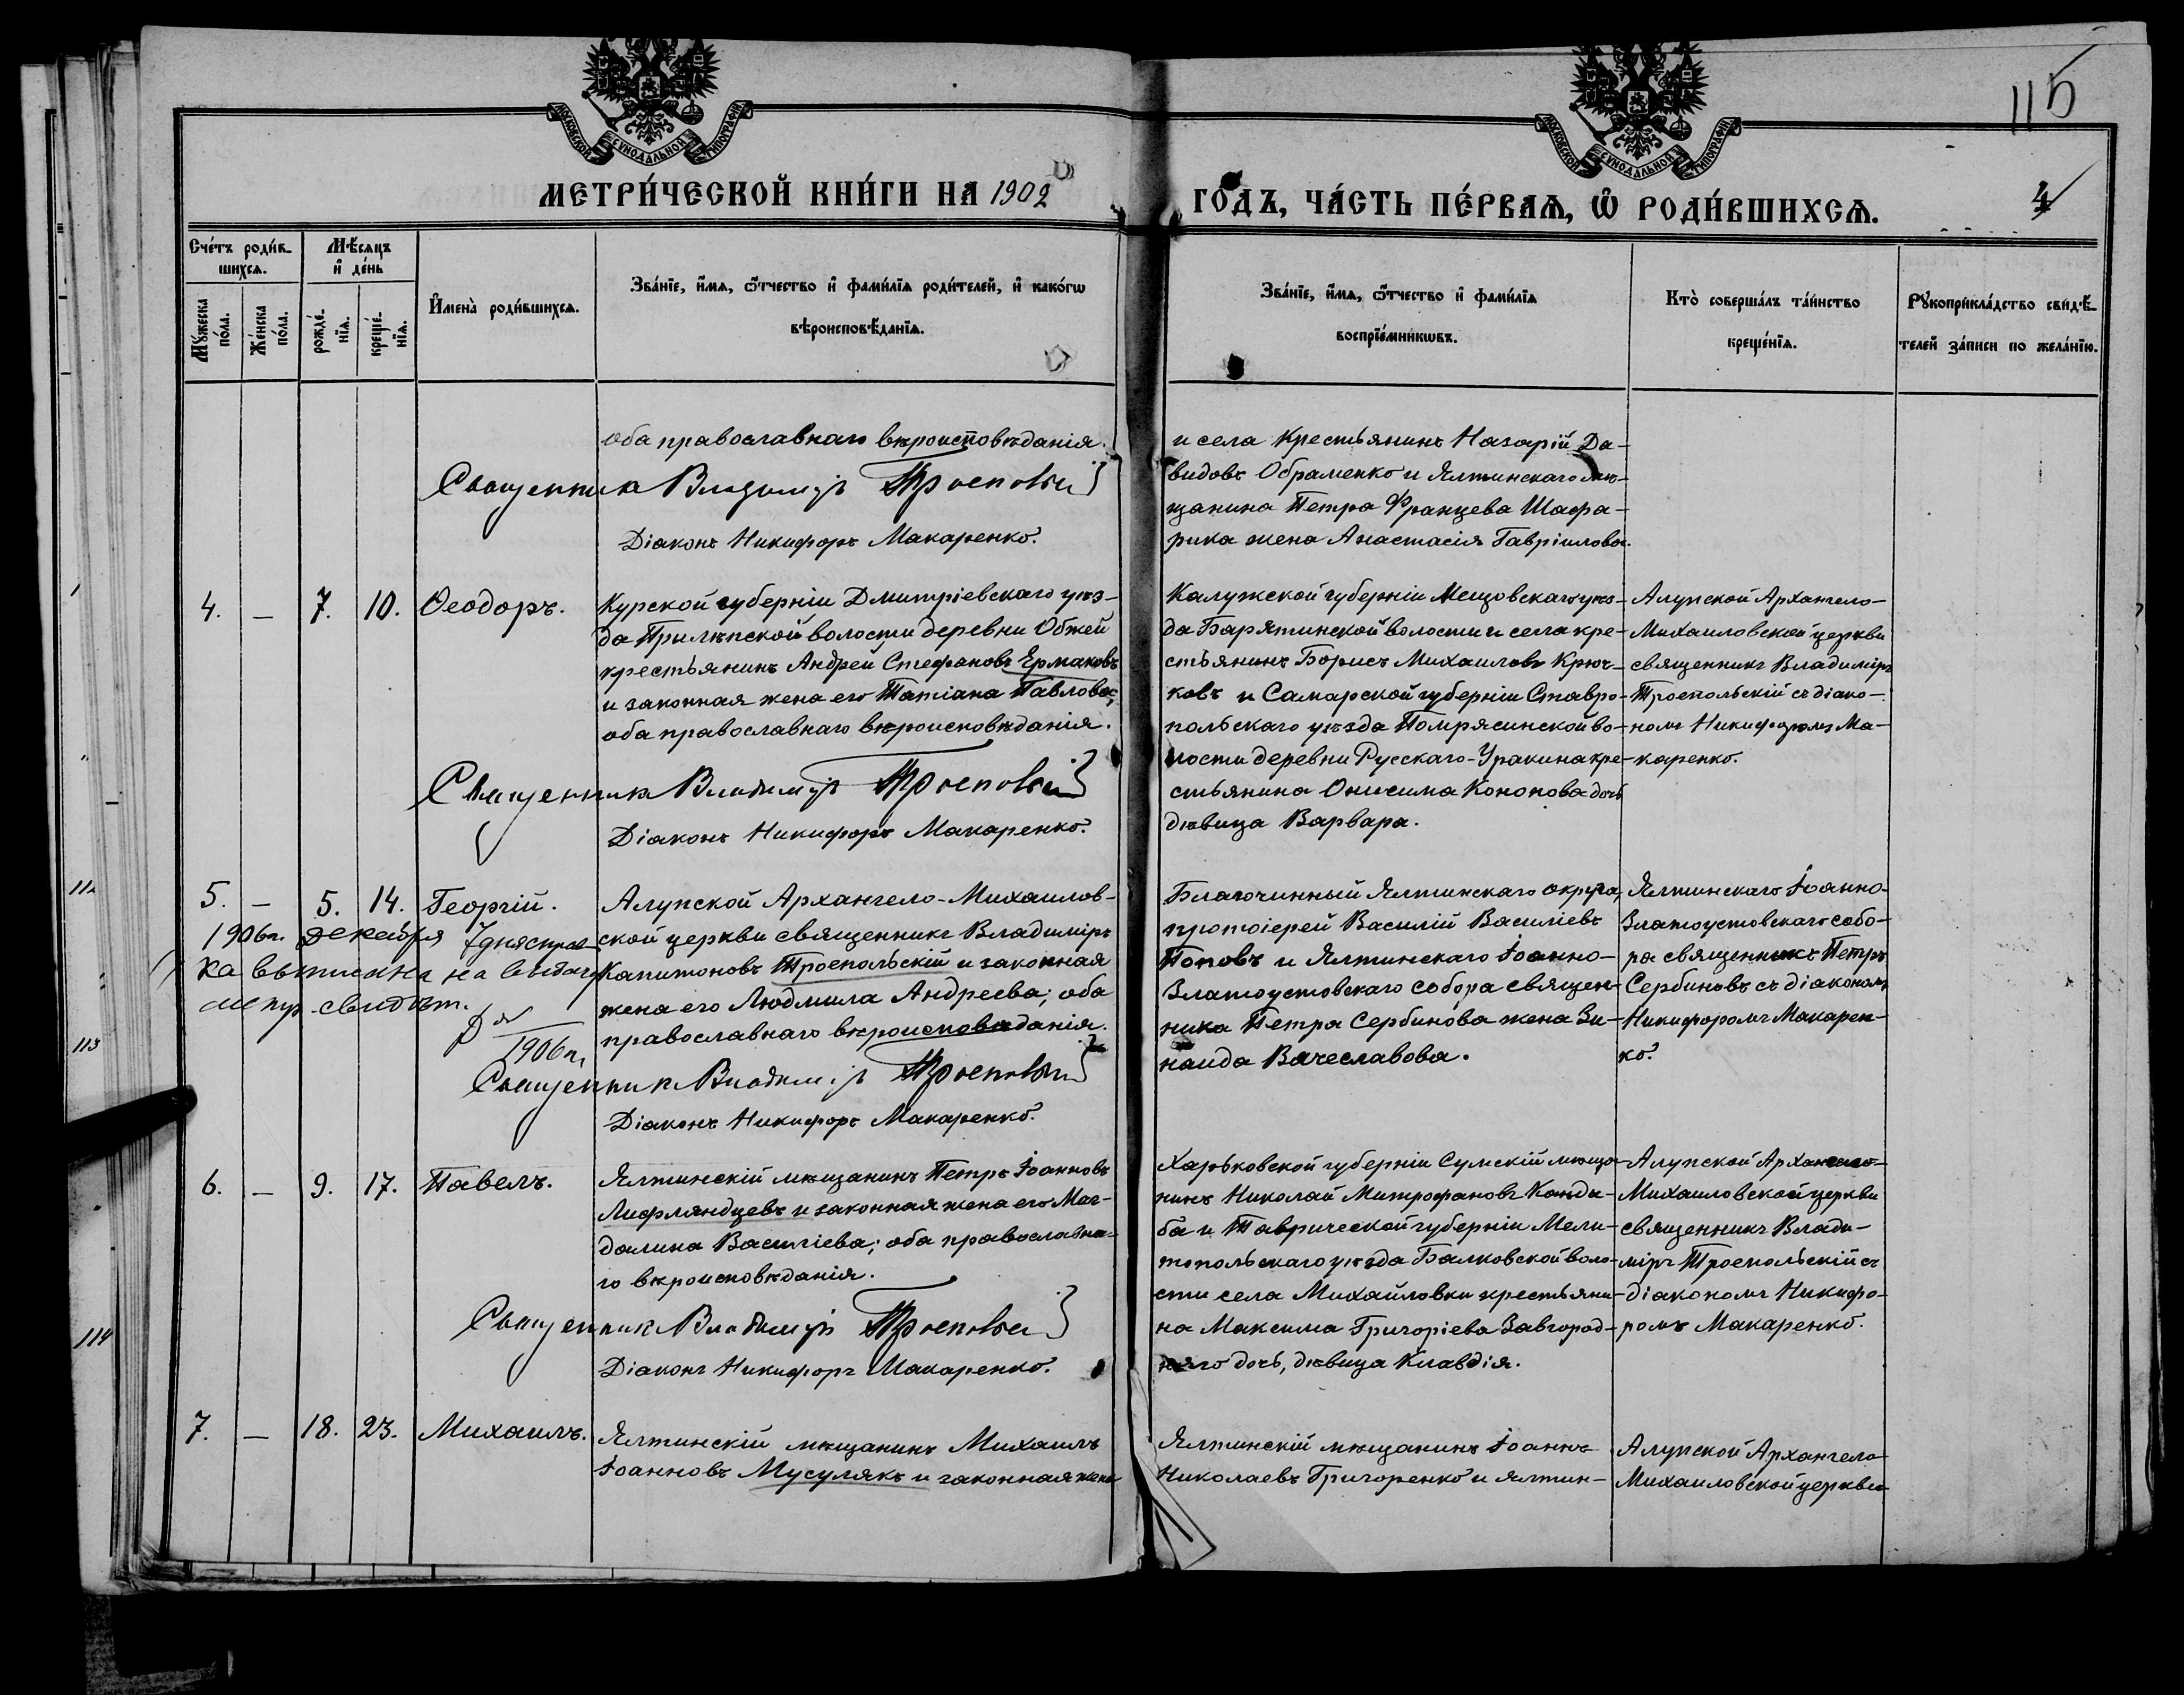 115
МОСКОВСКОЙ СѴНОДАЛЬНОЙ ТИПОГРАФІИ
МОСКОВСКОЙ СѴНОДАЛЬНОЙ ТИПОГРАФІИ
МЕТРИ́ЧЕСКОЙ КНИ́ГИ НА 1902
ГО́ДЪ, ЧА́СТЬ ПЕ́РВАѦ, Ѡ РОДИ́ВШИХСѦ.
4
Сче́тъ роди́в-
шихсѧ.
Мѣ́сѧцъ
и҆ де́нь
Мꙋ́жеска
по́ла.
Же́нска
по́ла.
рожде́-
нїѧ.
креще́-
нїѧ.
И҆мена̀ роди́вшихсѧ.
Зва́нїе, и҆́мѧ, ѻ҆́тчество и҆ фами́лїѧ роди́телей, и҆ како́гѡ
вѣроисповѣ́данїѧ.
Зва́нїе, и҆́мѧ, ѻ҆́тчество и҆ фами́лїѧ
воспрїе́мникѡвъ.
Кто̀ соверша́лъ та́инство
креще́нїѧ.
Рꙋкоприкла́дство свидѣ́-
телей за́писи по жела́нїю.
оба православнаго вѣроисповѣданія.
Священникъ Владиміръ Троепольскій
Діаконъ Никифоръ Макаренко.
и села крестьянинъ Назарій Да-
видовъ Обраменко и Ялтинскаго мѣ-
щанина Петра Францева Шафа-
рика жена Анастасія Гавріилова.
4. — 7. 10. Ѳеодоръ.
Курской губерніи Дмитріевскаго уѣз-
да Прилѣпской волости деревни Обжей
крестьянинъ Андрей Стефановъ Ермаковъ
и законная жена его Татіана Павлова;
оба православнаго вѣроисповѣданія.
Священникъ Владиміръ Троепольскій
Діаконъ Никифоръ Макаренко.
Калужской губерніи Мещовскаго уѣз-
да Барятинской волости и села кре-
стьянинъ Борисъ Михаиловъ Крюч-
ковъ и Самарской губерніи Ставро-
польскаго уѣзда Помрясинской во-
лости деревни Русскаго-Уракина кре-
стьянина Онисима Кононова дочь
дѣвица Варвара.
Алупской Архангело-
Михаиловской церкви
священникъ Владиміръ
Троепольскій съ діако-
номъ Никифоромъ Ма-
каренко.
5. — 5. 14. Георгій.
1906 г. декабря 7 дня справ-
ка выписана на выдачу
метр. свидѣт.
1906 г.
Алупской Архангело-Михаилов-
ской церкви священникъ Владиміръ
Капитоновъ Троепольскій и законная
жена его Людмила Андреева; оба
православнаго вѣроисповѣданія.
Священникъ Владиміръ Троепольскій
Діаконъ Никифоръ Макаренко.
Благочинный Ялтинскаго округа,
протоіерей Василій Василіевъ
Поповъ и Ялтинскаго Іоанно-
Златоустовскаго собора священ-
ника Петра Сербинова жена Зи-
наида Вячеславова.
Ялтинскаго Іоанно-
Златоустовскаго собо-
ра священникъ Петръ
Сербиновъ съ діакономъ
Никифоромъ Макарен-
ко.
6. — 9. 17. Павелъ.
Ялтинскій мѣщанинъ Петръ Іоанновъ
Лифляндцевъ и законная жена его Маг-
далина Василіева; оба православна-
го вѣроисповѣданія.
Священникъ Владиміръ Троепольскій
Діаконъ Никифоръ Макаренко.
Харьковской губерніи Сумскій мѣща-
нинъ Николай Митрофановъ Канды-
ба и Таврической губерніи Мели-
топольскаго уѣзда Балковской воло-
сти села Михайловки крестьяни-
на Максима Григоріева Завгород-
няго дочь, дѣвица Клавдія.
Алупской Архангело-
Михаиловской церкви
священникъ Влади-
міръ Троепольскій съ
діакономъ Никифо-
ромъ Макаренко.
7. — 18. 23. Михаилъ.
Ялтинскій мѣщанинъ Михаилъ
Іоанновъ Мусулякъ и законная жена
Ялтинскій мѣщанинъ Іоаннъ
Николаевъ Григоренко и Ялтин-
Алупской Архангело-
Михаиловской церкви
113
114